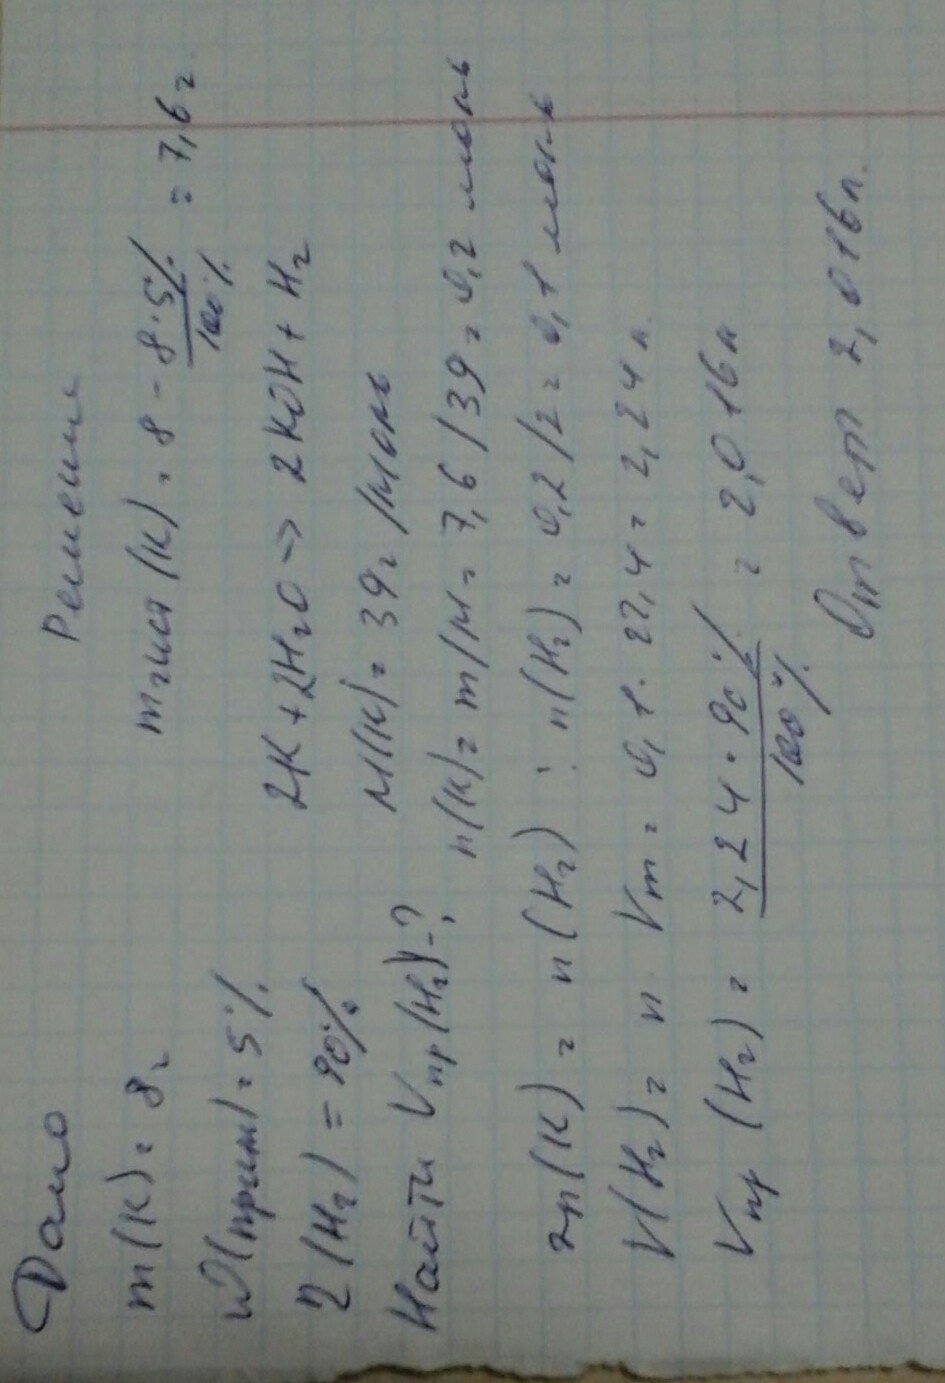 Дано
m(K) = 8 г
W(прим) = 5%
η(H₂) = 90%
Найти Vпр(H₂) - ?
Решение
mчист(K) = 8 - 8·5%/100% = 7,6 г
2K + 2H₂O → 2KOH + H₂
M(K) = 39 г/моль
n(K) = m/M = 7,6/39 = 0,2 моль
2n(K) = n(H₂) : n(H₂) = 0,2/2 = 0,1 моль
V(H₂) = n · Vm = 0,1 · 22,4 = 2,24 л.
Vпр(H₂) = 2,24·90%/100% = 2,016 л
Ответ 2,016 л.